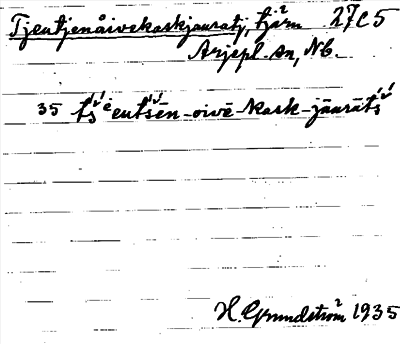 Tjeutjenåivekaskjauratj, tjärn 27C5
Arjepl. sn, Nb.
35 tś'eutśēn-oivē-kask-jāurātś
H. Grundström 1935